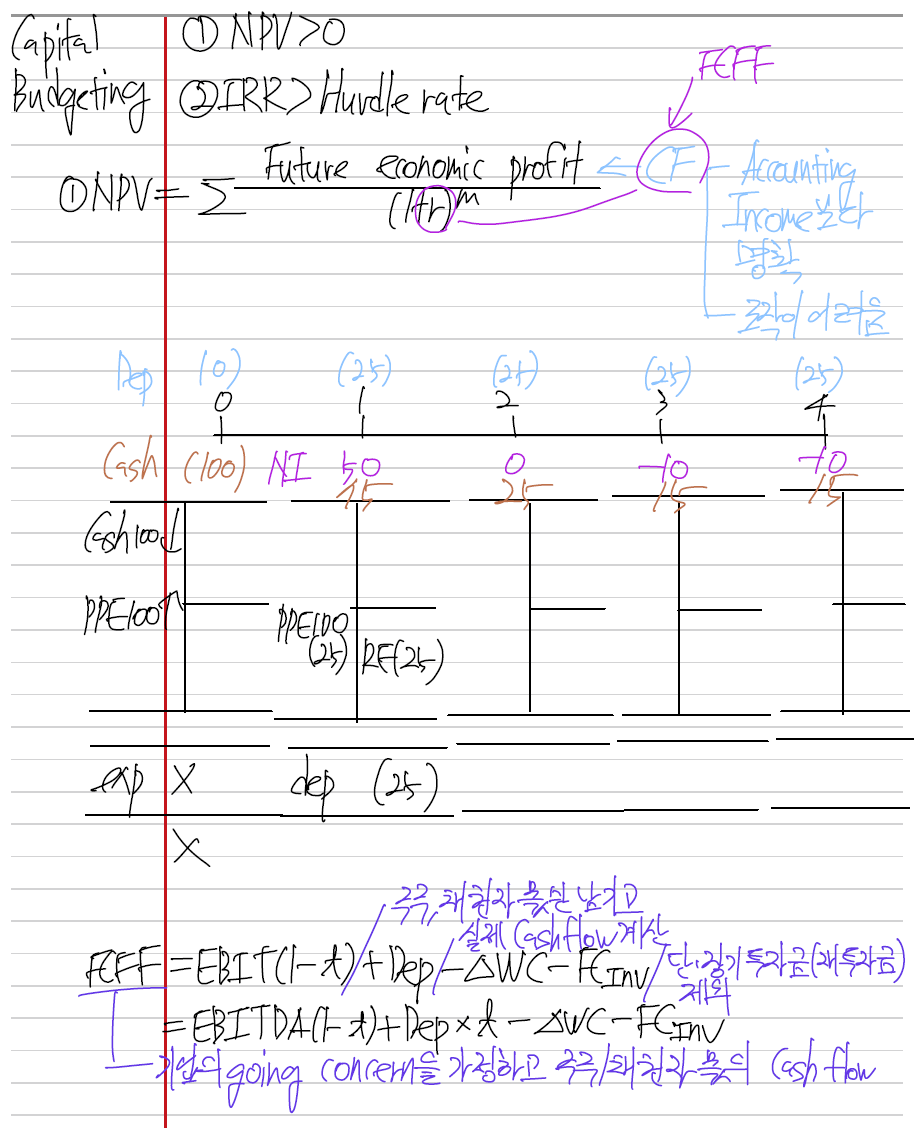 Capital ① NPV>0
Budgeting ② IRR> Hurdle rate
FCFF
① NPV = Σ Future economic profit / (1+r)^n ← CF - Accounting
Income보다
명확
조작이 어려움
Dep (0) (25) (25) (25) (25)
0 1 2 3 4
Cash (100) NI 50 0 -10 -10
75 25 15 15
Cash100↓
PPE100↑ PPE100
(25) RE(25)
exp X dep (25)
X
주주,채권자 몫분 남기고
실제 Cashflow 계산
FCFF = EBIT(1-t) + Dep - ΔWC - FC Inv 단·장기 투자금(재투자금)
제외
= EBITDA(1-t) + Dep × t - ΔWC - FC Inv
기업의 going concern을 가정하고 주주/채권자 몫의 Cash flow